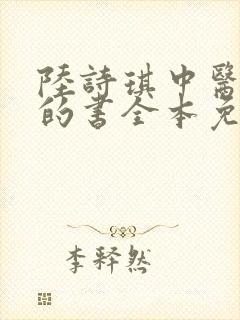 陸詩琪中醫
的書全本免
李釋然